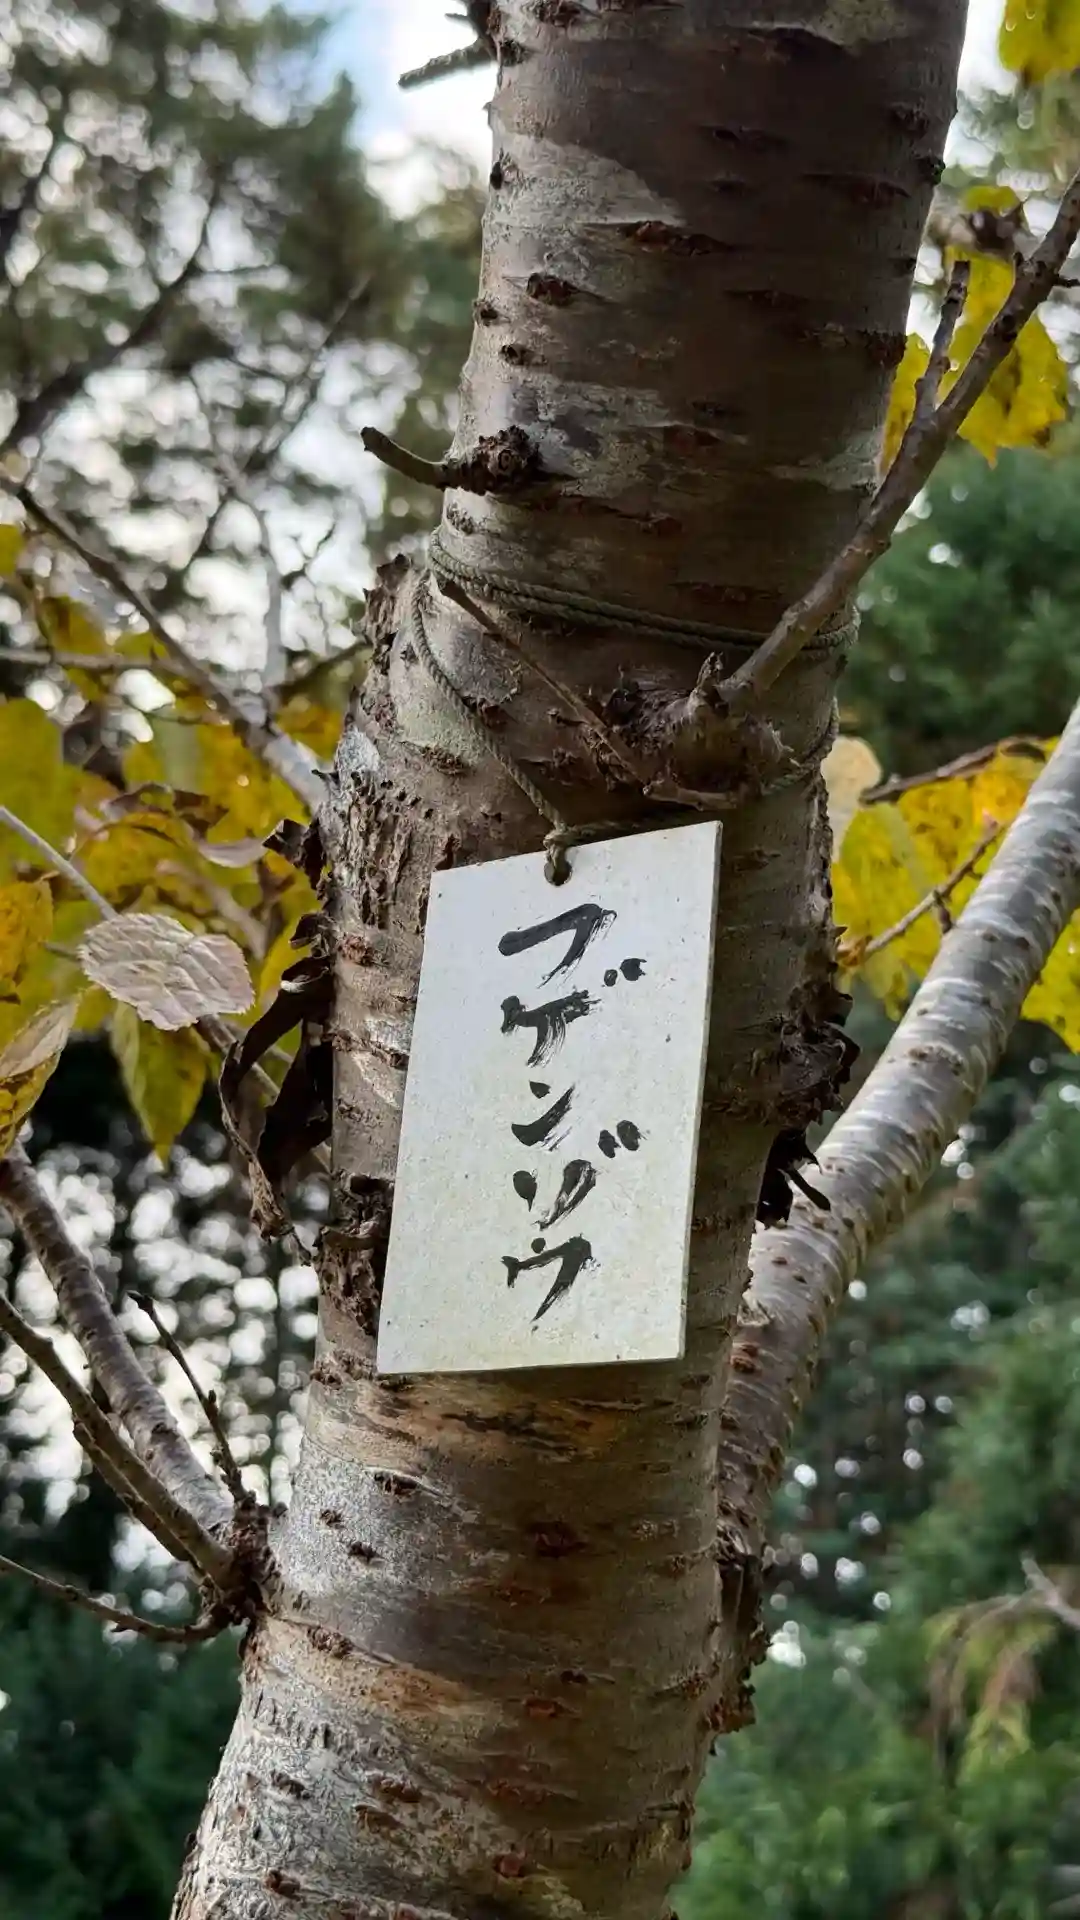 フゲンゾウ